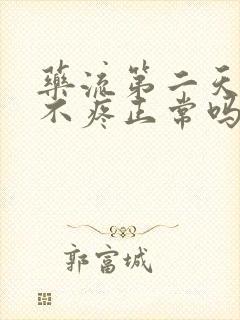 藥流第二天
不疼正常吗
郭富城